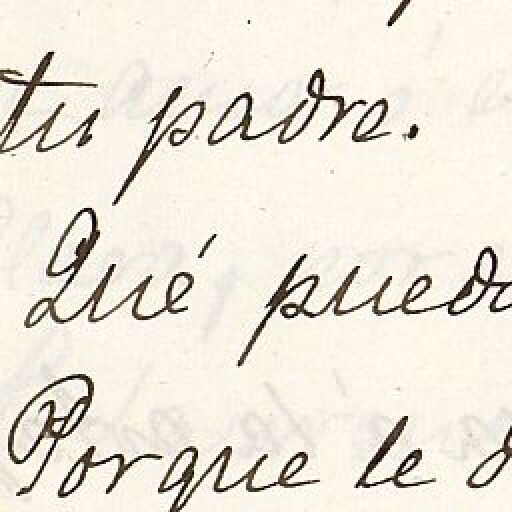 tu padre.
Qué puedo
Porque le d